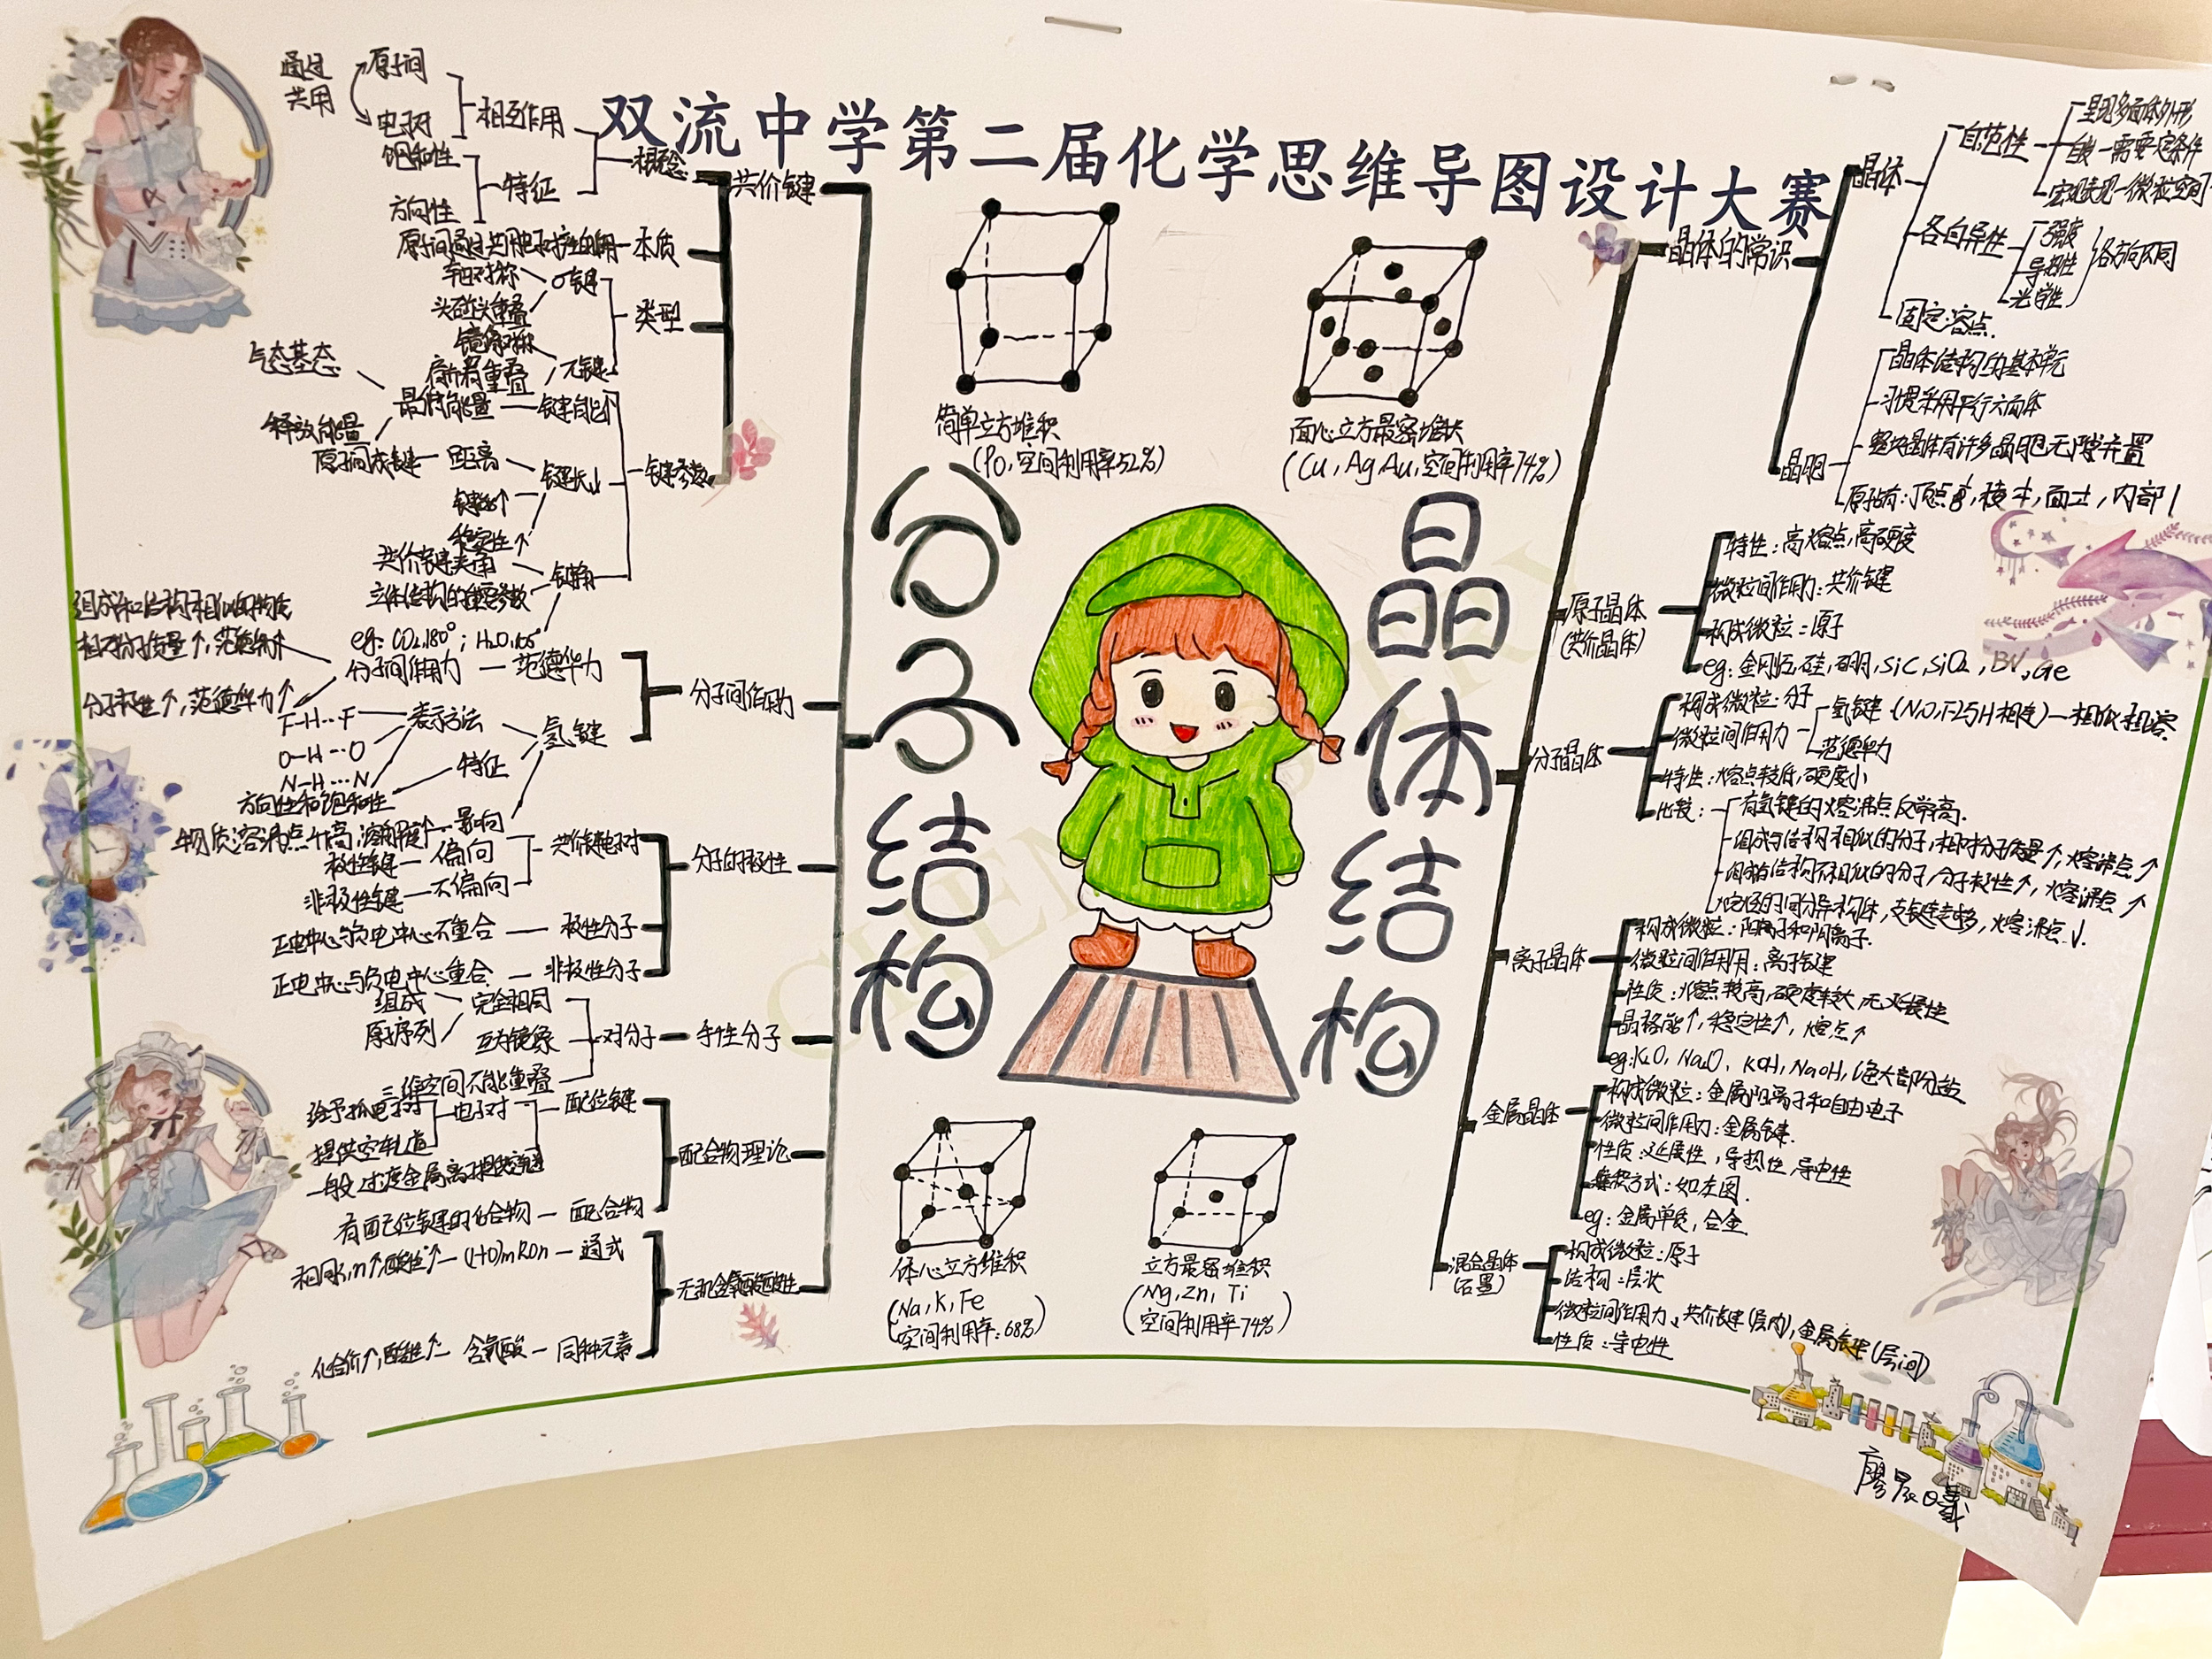 双流中学第二届化学思维导图设计大赛
分子结构
晶体结构
CHEMISTRY
共价键
概念
相互作用
通过
共用
原子间
电子对
特征
饱和性
方向性
本质
类型
σ键
轴对称
头碰头重叠
π键
镜像对称
肩并肩重叠
键参数
键能
最低能量
气态基态
释放能量
键长↓
距离
原子间成键
键能↑
稳定性↑
键角
共价键夹角
立体结构的重要参数
eg: CO₂,180°; H₂O,105°
分子间作用力
分子间作用力 — 范德华力
组成和结构相似的物质
相对分子质量↑,范德华力↑
分子极性↑,范德华力↑
氢键
表示方法
F-H…F
O-H…O
N-H…N
特征
方向性和饱和性
影响
分子的极性
共价键电对
极性键 — 偏向
非极性键 — 不偏向
正电中心与负电中心不重合 — 极性分子
正电中心与负电中心重合 — 非极性分子
手性分子
对分子
组成
原子序列
完全相同
互为镜象
三维空间不能重叠
配合物理论
配位键
电子对
给予孤电子对
提供空轨道
一般过渡金属离子提供空轨道
有配位键的化合物 — 配合物
无机含氧酸酸性
相同,n↑,酸性↑ — (HO)mROn — 通式
化合价↑,酸性↑ 含氧酸 — 同种元素
简单立方堆积
(Po,空间利用率52%)
面心立方最密堆状
(Cu, Ag Au,空间利用率74%)
体心立方堆积
(Na,K,Fe
空间利用率:68%)
立方最密堆积
(Mg, Zn, Ti
空间利用率74%)
晶体的常识
晶体
自范性
呈现多面体外形
自发—需要一定条件
宏观表现—微粒空间
各向异性
强度
导热性
光学性
各方向不同
固定溶点.
晶胞
晶体结构的基本单元
习惯采用平行六面体
整块晶体有许多晶胞无隙并置
原子占有:顶点⅛,棱¼,面½,内部1
原子晶体
(共价晶体)
特性:高熔点,高硬度
微粒间作用力:共价键
构成微粒:原子
eg:金刚石,硅,硼,SiC,SiO₂,BN,Ge
分子晶体
构成微粒:分子
微粒间作用力
氢键
范德华力
特性:熔点较低,硬度小
比较:
有氢键的熔沸点反常高.
组成与结构相似的分子,相对分子质量↑,熔沸点↑
组成与结构不相似的分子,分子极性↑,熔沸点↑
离子晶体
构成微粒:阳离子和阴离子.
微粒间作用用:离子键
性质:熔点较高,硬度较大,无延展性
晶格能↑,稳定性↑,熔点↑
eg:K₂O, Na₂O, KOH, NaOH, 绝大部分盐
金属晶体
构成微粒:金属阳离子和自由电子
微粒间作用力:金属键.
性质:延展性,导热性,导电性
堆积方式:如左图.
eg:金属单质,合金
混合晶体
(石墨)
构成微粒:原子
结构:层状
微粒间作用力:共价键(层内),金属键(层间)
性质:导电性
廖晨曦